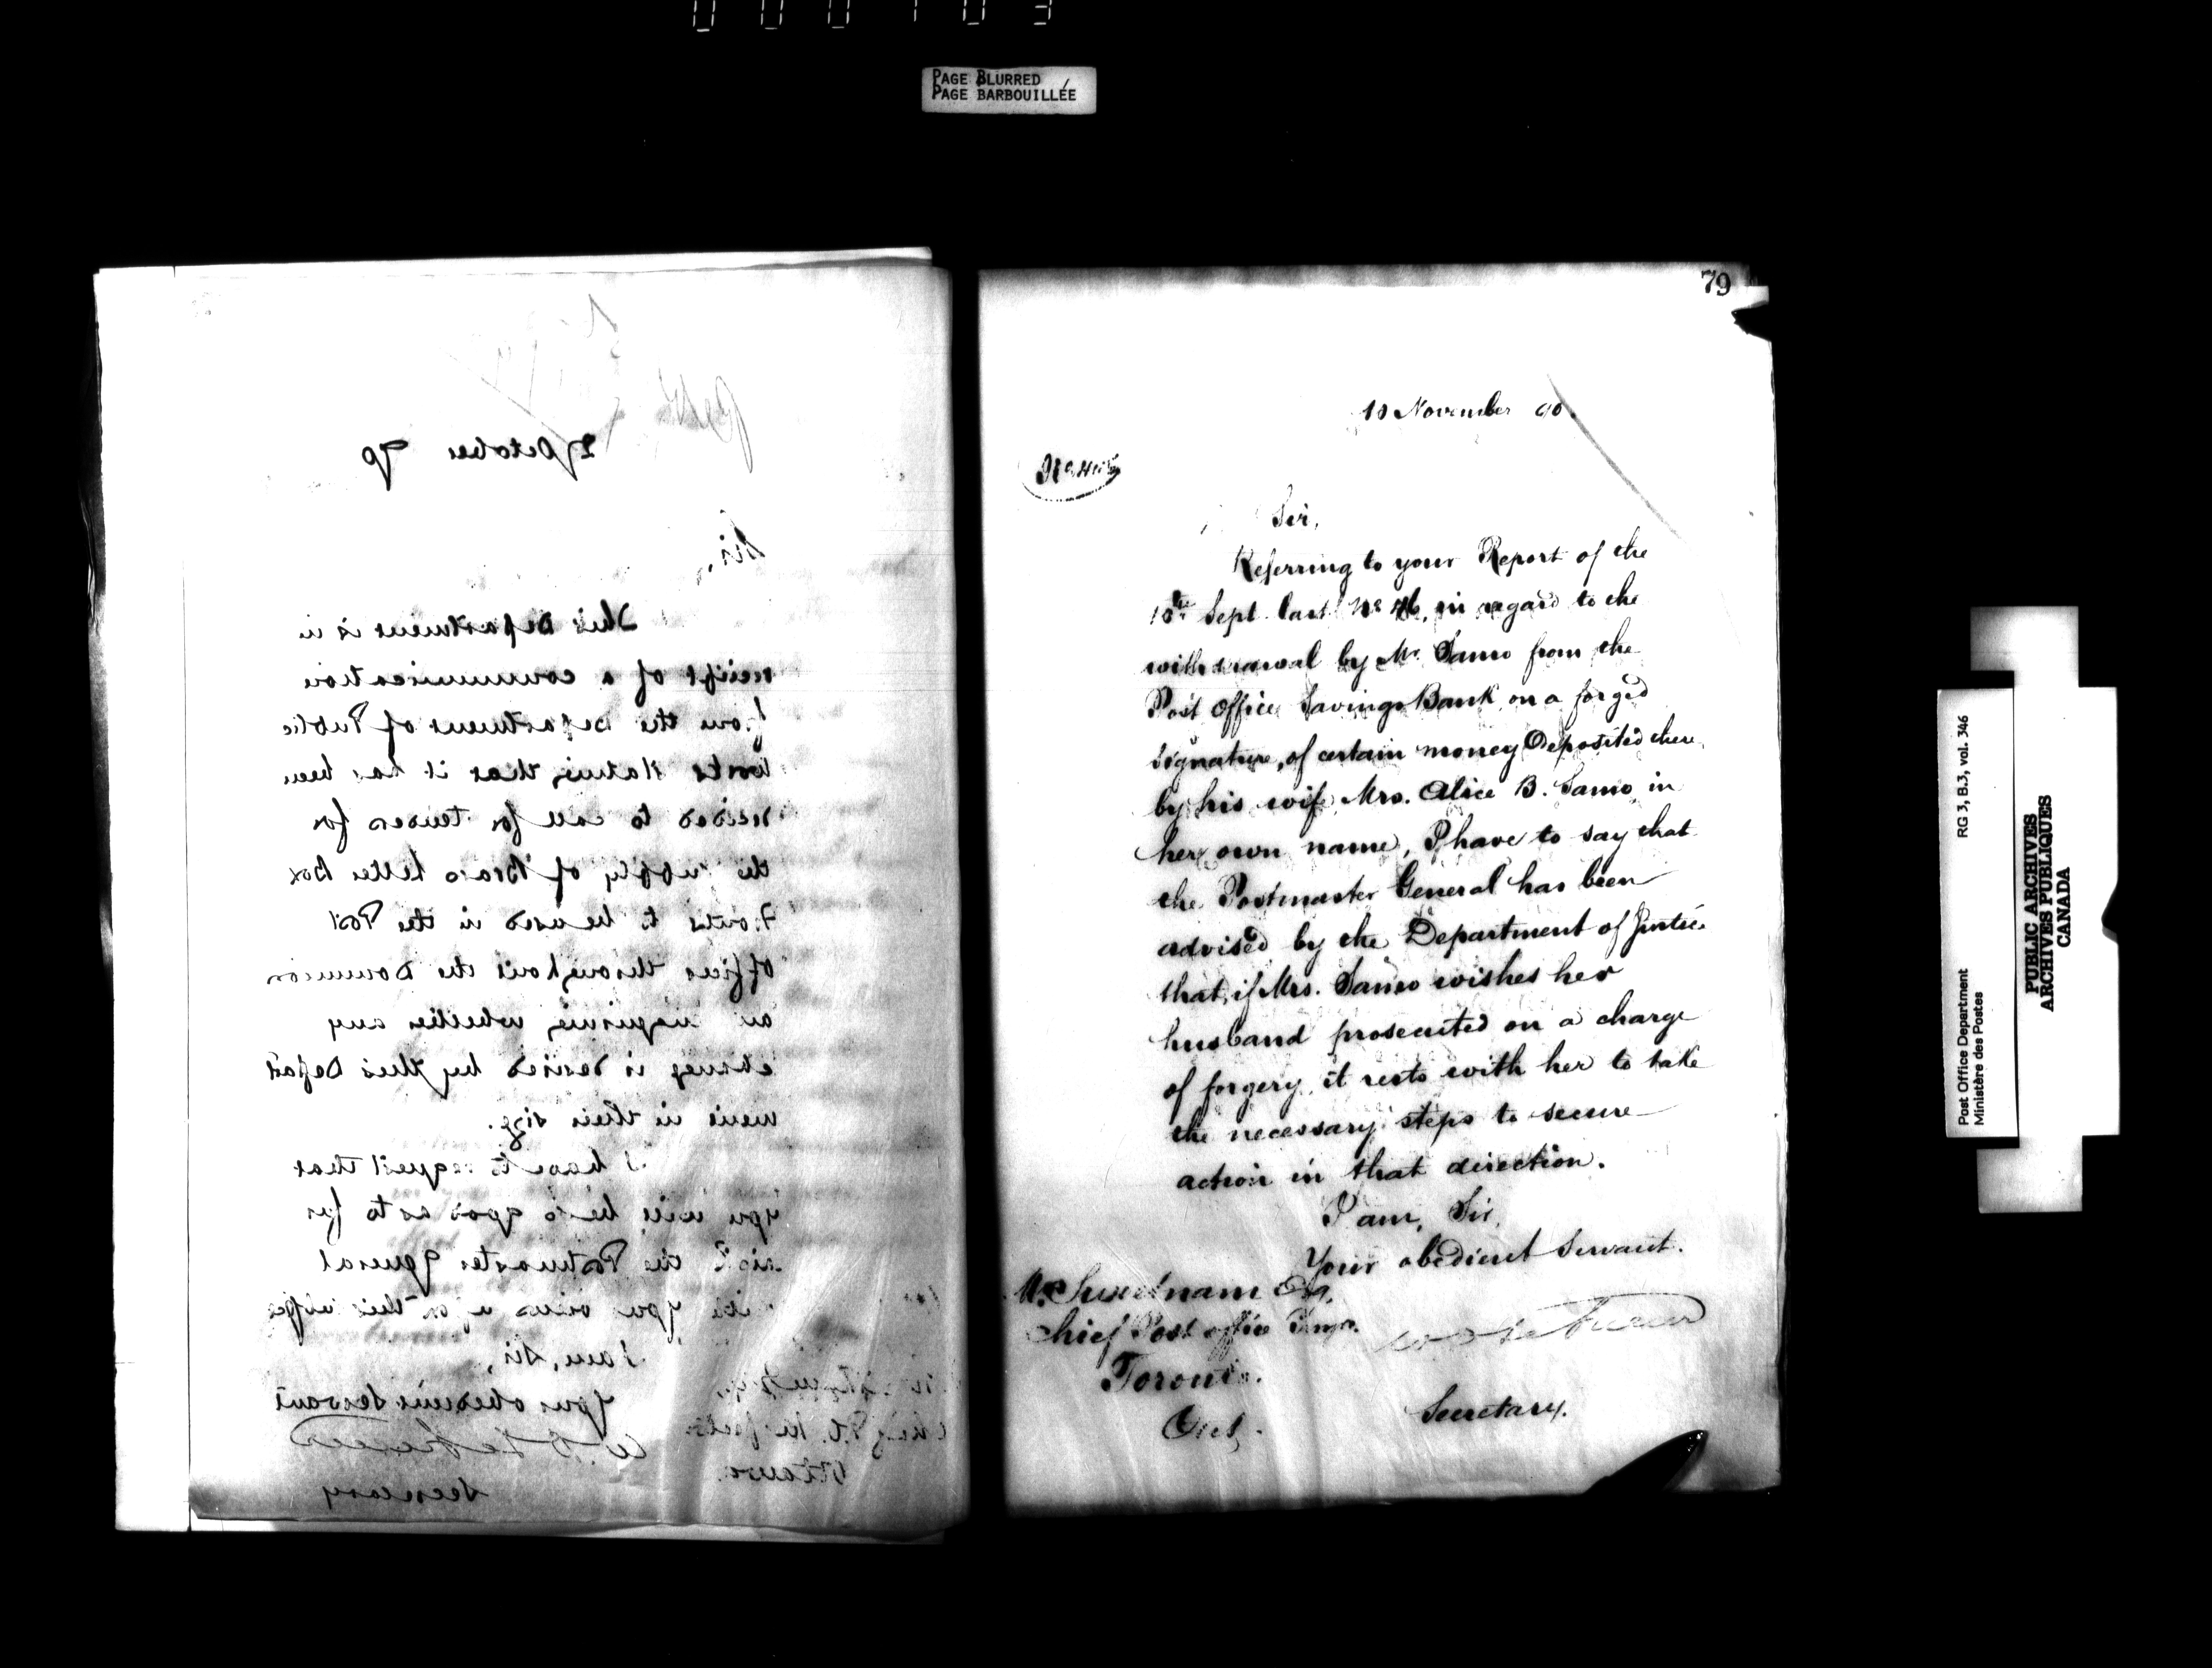 PAGE BLURRED
PAGE BARBOUILLÉE
27 October 90
Sir,
This Department is in
receipt of a communication
from the Department of Public
Works stating that it has been
decided to call for tenders for
the supply of Brass Letter Box
Fronts to be used in the Post
Offices throughout the Dominion
an inquiring whether any
change is desired by this Depart
ment in their size.
I have to request that
you will be so good as to fur
nish the Postmaster General
with your views upon this subject
I am, Sir,
Your obedient Servant
W. D. LeSueur
Secretary
Chief P.O. Inspector
Ottawa
79
10 November 90.
Sir,
Referring to your Report of the
18th Sept. last No 46, in regard to the
withdrawal by Mr Samo from the
Post Office Savings Bank on a forged
signature, of certain money Deposited there
by his wife Mrs. Alice B. Samo in
her own name, I have to say that
the Postmaster General has been
advised by the Department of Justice
that, if Mrs. Samo wishes her
husband prosecuted on a charge
of forgery it rests with her to take
the necessary steps to secure
action in that direction.
I am, Sir,
Your obedient Servant.
M. Sweetnam Esq.
Chief Post office Inspr.
W D LeSueur
Toronto.
Secretary.
Ont.
Post Office Department
Ministère des Postes
RG 3, B.3, vol. 346
PUBLIC ARCHIVES
ARCHIVES PUBLIQUES
CANADA